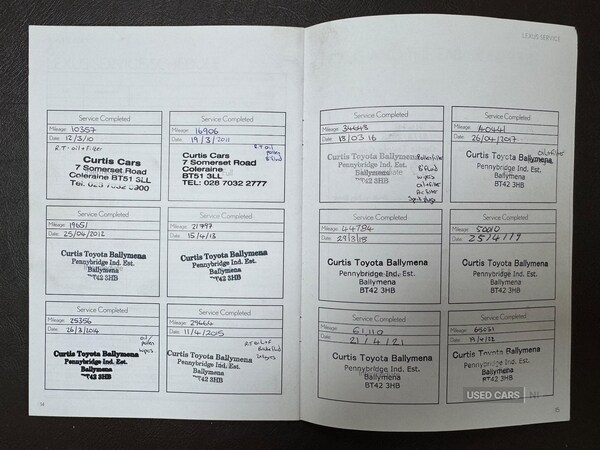 LEXUS SERVICE
Service Completed
Mileage: 10357
Date: 12/3/10
R.T. oil + filter
Curtis Cars
7 Somerset Road
Coleraine BT51 3LL
Service Completed
Mileage: 16906
Date: 19/3/2011
Curtis Cars
7 Somerset Road
Coleraine
BT51 3LL
TEL: 028 7032 2777
Service Completed
Mileage: 19651
Date: 25/04/2012
Curtis Toyota Ballymena
Pennybridge Ind. Est.
Ballymena
BT42 3HB
Service Completed
Mileage: 21797
Date: 15/4/13
Curtis Toyota Ballymena
Pennybridge Ind. Est.
Ballymena
BT42 3HB
Service Completed
Mileage: 25356
Date: 26/3/2014
oil/
pollen
wipers
Curtis Toyota Ballymena
Pennybridge Ind. Est.
Ballymena
BT42 3HB
Service Completed
Mileage:
Date: 11/4/2015
Curtis Toyota Ballymena
Pennybridge Ind. Est.
Ballymena
BT42 3HB
Service Completed
Mileage: 34648
Date: 18/03/16
Curtis Toyota Ballymena
Pennybridge Ind. Est.
Ballymena
BT42 3HB
Pollen filter
B fluid
wipers
oil + filter
Air filter
Service Completed
Mileage: 40441
Date: 26/04/2017
oil + filter
Curtis Toyota Ballymena
Pennybridge Ind. Est.
Ballymena
BT42 3HB
Service Completed
Mileage: 44784
Date: 29/3/18
Curtis Toyota Ballymena
Pennybridge Ind. Est.
Ballymena
BT42 3HB
Service Completed
Mileage: 50010
Date: 25/4/19
Curtis Toyota Ballymena
Pennybridge Ind. Est.
Ballymena
BT42 3HB
Service Completed
Mileage: 61,110
Date: 21/4/21
Curtis Toyota Ballymena
Pennybridge Ind. Est.
Ballymena
BT42 3HB
Service Completed
Mileage: 65031
Date: 19/4/22
Curtis Toyota Ballymena
Pennybridge Ind. Est.
Ballymena
BT42 3HB
USED CARS NI